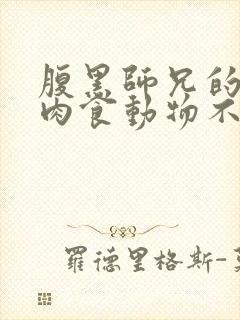 腹黑師兄的
肉食動物不
羅德里格斯-